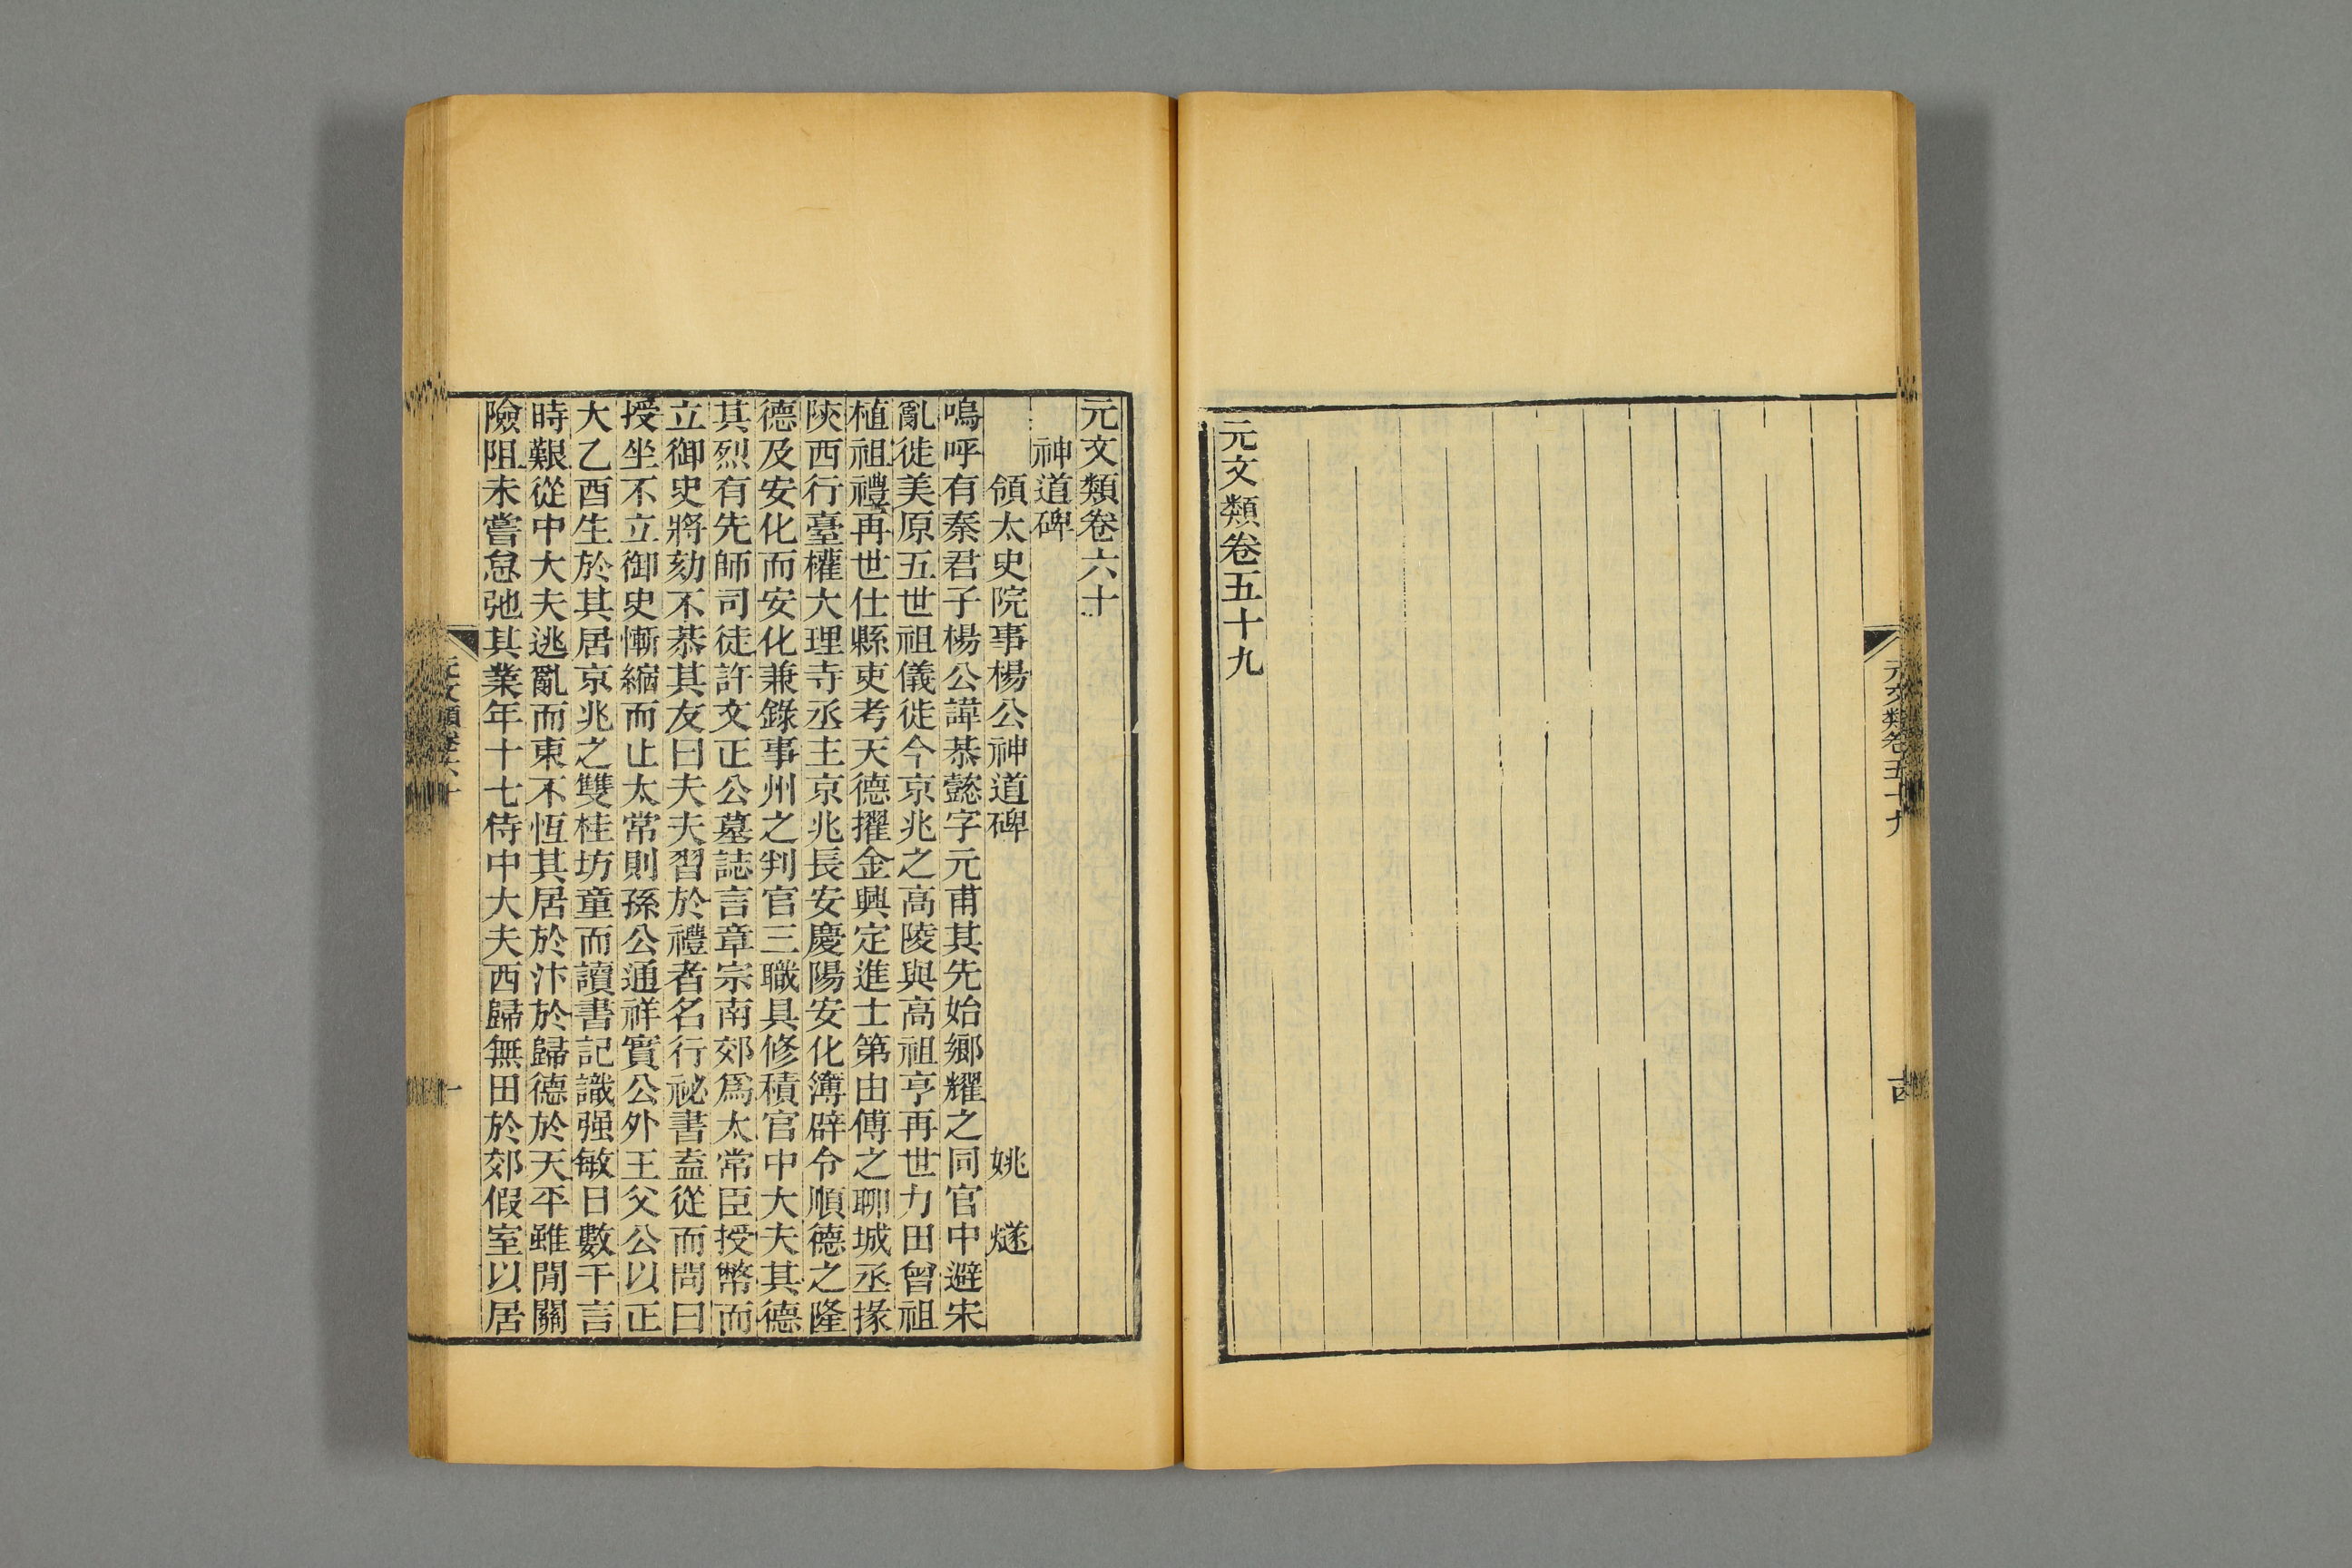 元文類卷五十九
十四
元文類卷五十九
元文類卷六十
神道碑
領太史院事楊公神道碑 姚 燧
嗚呼有秦君子楊公諱恭懿字元甫其先始鄉耀之同官中避宋
亂徙美原五世祖儀徙今京兆之高陵與高祖亨再世力田曾祖
植祖禮再世仕縣吏考天德擢金興定進士第由傅之聊城丞掾
陝西行臺權大理寺丞主京兆長安慶陽安化簿辟令順德之隆
德及安化而安化兼錄事州之判官三職具修積官中大夫其德
其烈有先師司徒許文正公墓誌言章宗南郊爲太常臣授幣而
立御史將劾不恭其友曰夫夫習於禮者名行祕書盍從而問曰
授坐不立御史慚縮而止太常則孫公通祥實公外王父公以正
大乙酉生於其居京兆之雙桂坊童而讀書記識强敏日數千言
時艱從中大夫逃亂而東不恆其居於汴於歸德於天平雖閒關
險阻未嘗怠弛其業年十七侍中大夫西歸無田於郊假室以居
元文類卷六十
一